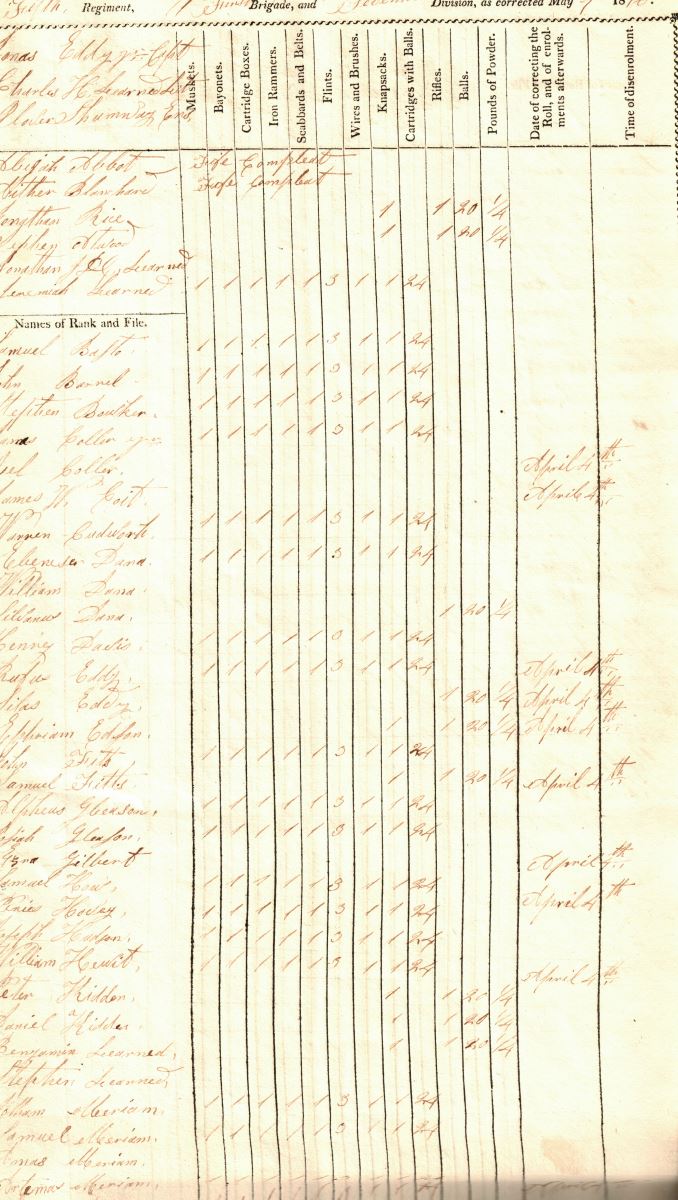 Regiment, Brigade, and Division, as corrected May 18
Eddy jr Capt
Charles H. Learned
Muskets.
Bayonets.
Cartridge Boxes.
Iron Rammers.
Scabbards and Belts.
Flints.
Wires and Brushes.
Knapsacks.
Cartridges with Balls.
Rifles.
Balls.
Pounds of Powder.
Date of correcting the
Roll, and of enrol-
ments afterwards.
Time of disenrolment.
Abijah Abbot Fife Compleat
Blanchard Fife Compleat
Jonathan Rice 1 1 20 1/4
Stephen Atwood 1 1 20 1/4
Jonathan Learned
Jeremiah Learned 1 1 1 1 1 3 1 1 24
Names of Rank and File.
Samuel 1 1 1 1 1 3 1 1 24
John Barnel 1 1 1 1 1 3 1 1 24
Stephen 1 1 1 1 1 3 1 1 24
Coller 1 1 1 1 1 3 1 1 24
Coller. April 4th
James W. Coit. April 4th
Warren Cudworth. 1 1 1 1 1 3 1 1 24
Ebenezer Dana. 1 1 1 1 1 3 1 1 24
William Dana.
Dana. 1 20 1/4
Davis. 1 1 1 1 1 3 1 1 24
Rufus Eddy, 1 1 1 1 1 3 1 1 24 April 4th
Silas Eddy, 1 20 1/4 April 4th
Ephriam Edson. 1 1 20 1/4 April 4th
John Fitts 1 1 1 1 1 3 1 1 24
Samuel Fitts 1 1 20 1/4 April 4th
Alpheus Gleason, 1 1 1 1 1 3 1 1 24
Josiah Gleason, 1 1 1 1 1 3 1 1 24
Ezra Gilbert April 4th
Samuel How, 1 1 1 1 1 3 1 1 24
1 1 1 1 1 3 1 1 24 April 4th
Joseph Hudson, 1 1 1 1 1 3 1 1 24
William Hewit, 1 1 1 1 1 3 1 1 24
Kidder, 1 1 20 1/4 April 4th
Daniel Kidder 1 1 20 1/4
Benjamin Learned, 1 1 20 1/4
Stephen Learned
Meriam. 1 1 1 1 1 3 1 1 24
Samuel Meriam. 1 1 1 1 1 3 1 1 24
Amas Meriam.
Artemas Meriam,